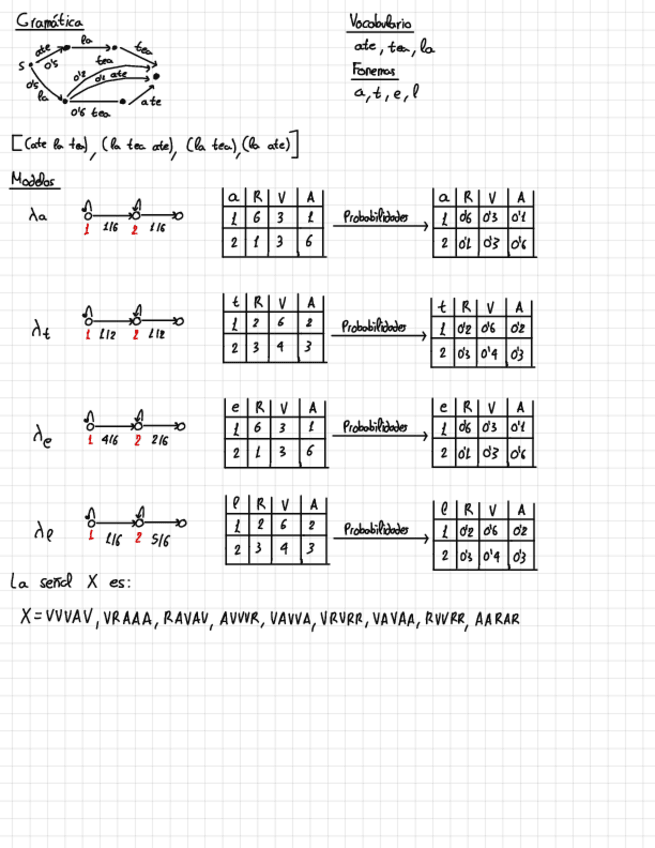 Gramática
Vocabulario
ate, tea, la
Fonemas
a, t, e, l
ate la tea
S 0'5
0'2 tea
0'2 ate
0'5
la
0'6 tea
ate
[(ate la tea), (la tea ate), (la tea), (la ate)]
Modelos
λa 1 1/6 2 1/6
a R V A
1 6 3 1
2 1 3 6
Probabilidades
a R V A
1 0'6 0'3 0'1
2 0'1 0'3 0'6
λt 1 1/2 2 1/2
t R V A
1 2 6 2
2 3 4 3
Probabilidades
t R V A
1 0'2 0'6 0'2
2 0'3 0'4 0'3
λe 1 4/6 2 2/6
e R V A
1 6 3 1
2 1 3 6
Probabilidades
e R V A
1 0'6 0'3 0'1
2 0'1 0'3 0'6
λl 1 1/6 2 5/6
l R V A
1 2 6 2
2 3 4 3
Probabilidades
l R V A
1 0'2 0'6 0'2
2 0'3 0'4 0'3
La señal X es:
X=VVVAV, VRAAA, RAVAV, AVVVR, VAVVA, VRVRR, VAVAA, RVVRR, AARAR